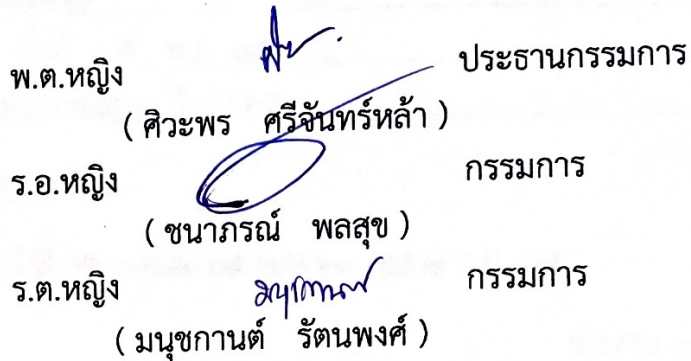 พ.ต.หญิง ประธานกรรมการ
( ศิวะพร ศรีจันทร์หล้า )
ร.อ.หญิง กรรมการ
( ชนาภรณ์ พลสุข )
ร.ต.หญิง มนุชกานต์ กรรมการ
( มนุชกานต์ รัตนพงศ์ )